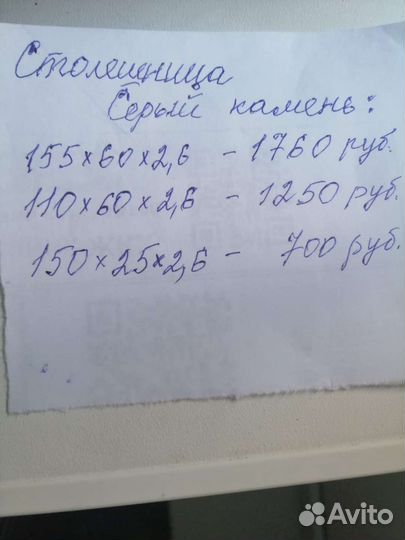 Столешница
Серый камень:
155×60×2,6 - 1760 руб.
110×60×2,6 - 1250 руб.
150×25×2,6 - 700 руб.
Avito